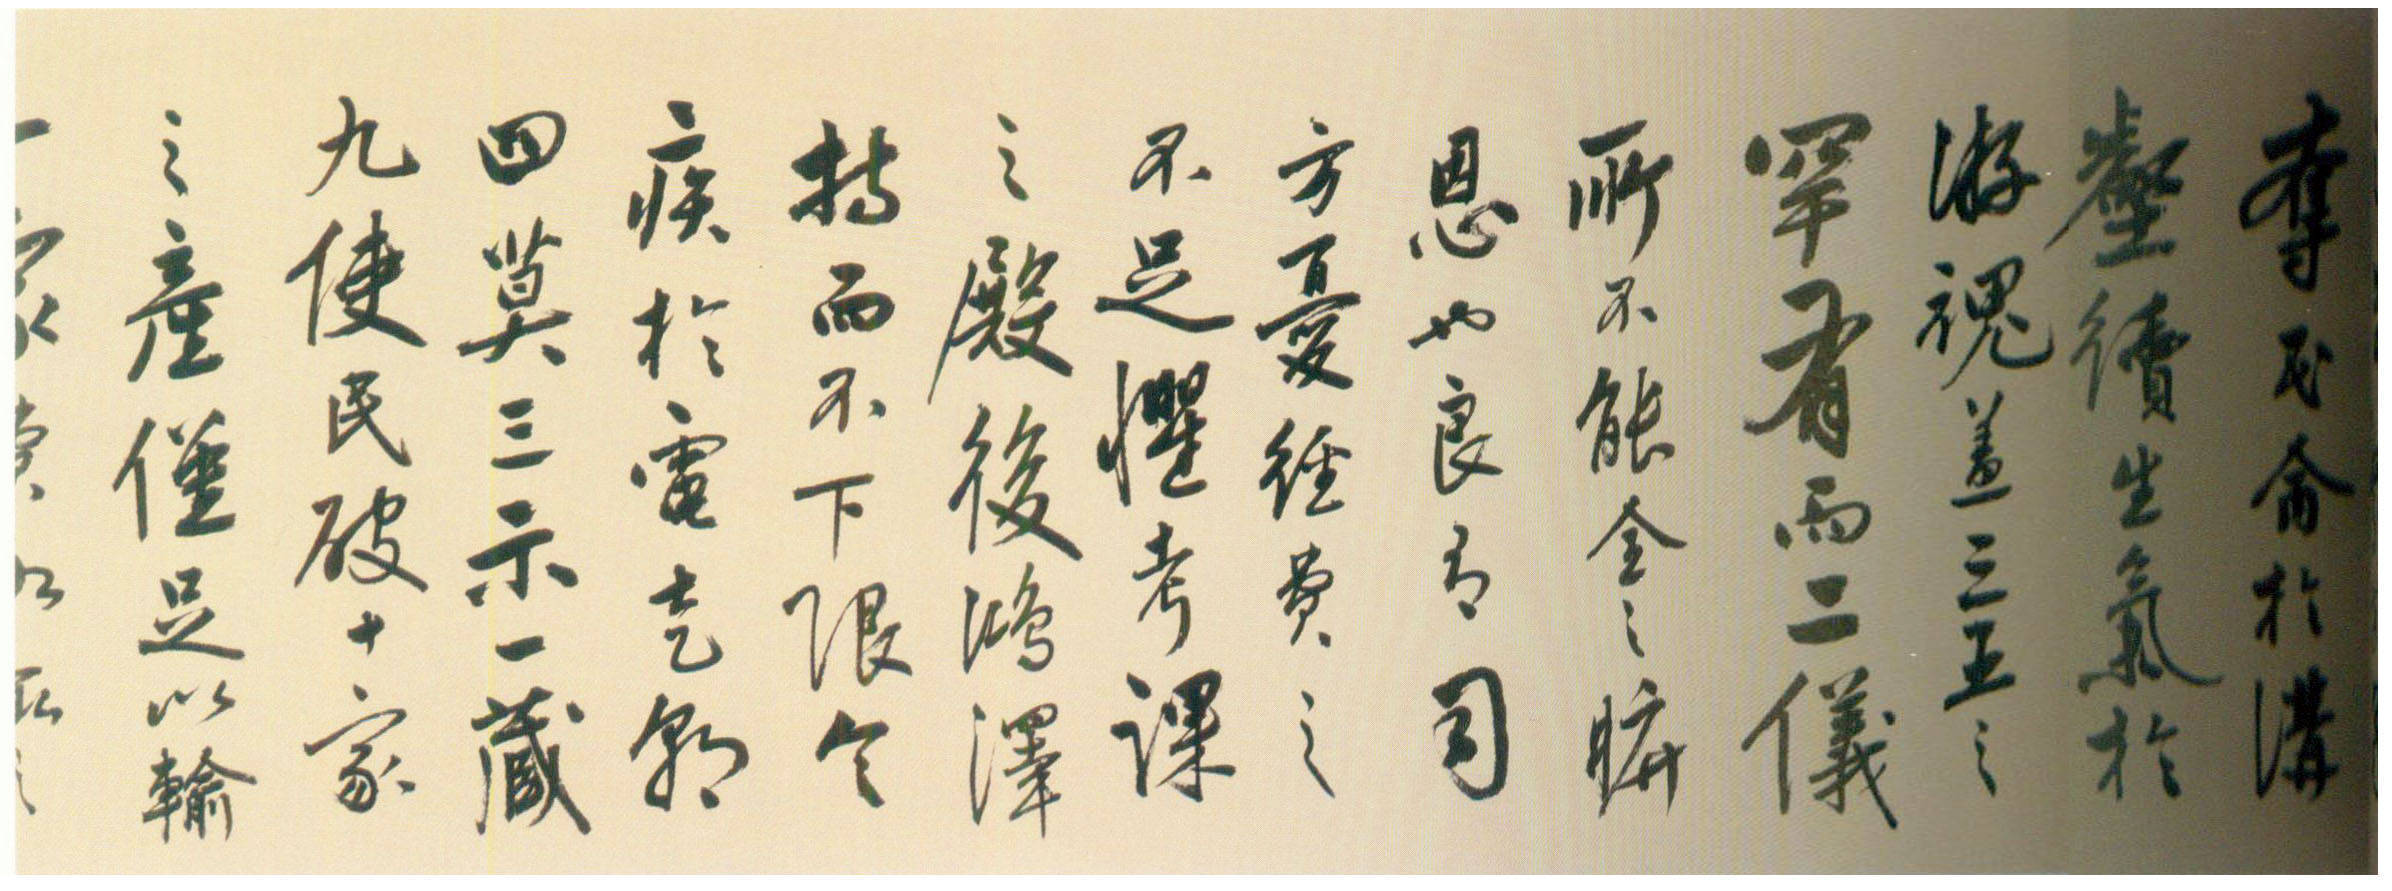 奪民命於溝
壑續生氣於
游魂蓋三王之
罕有而二儀
所不能全之
恩也良有司
方憂經費之
不足懼考課
之殿後鴻澤
持而不下限令
疾於電走朝
四莫三示一藏
九使民破十家
之產僅足以輸
一家